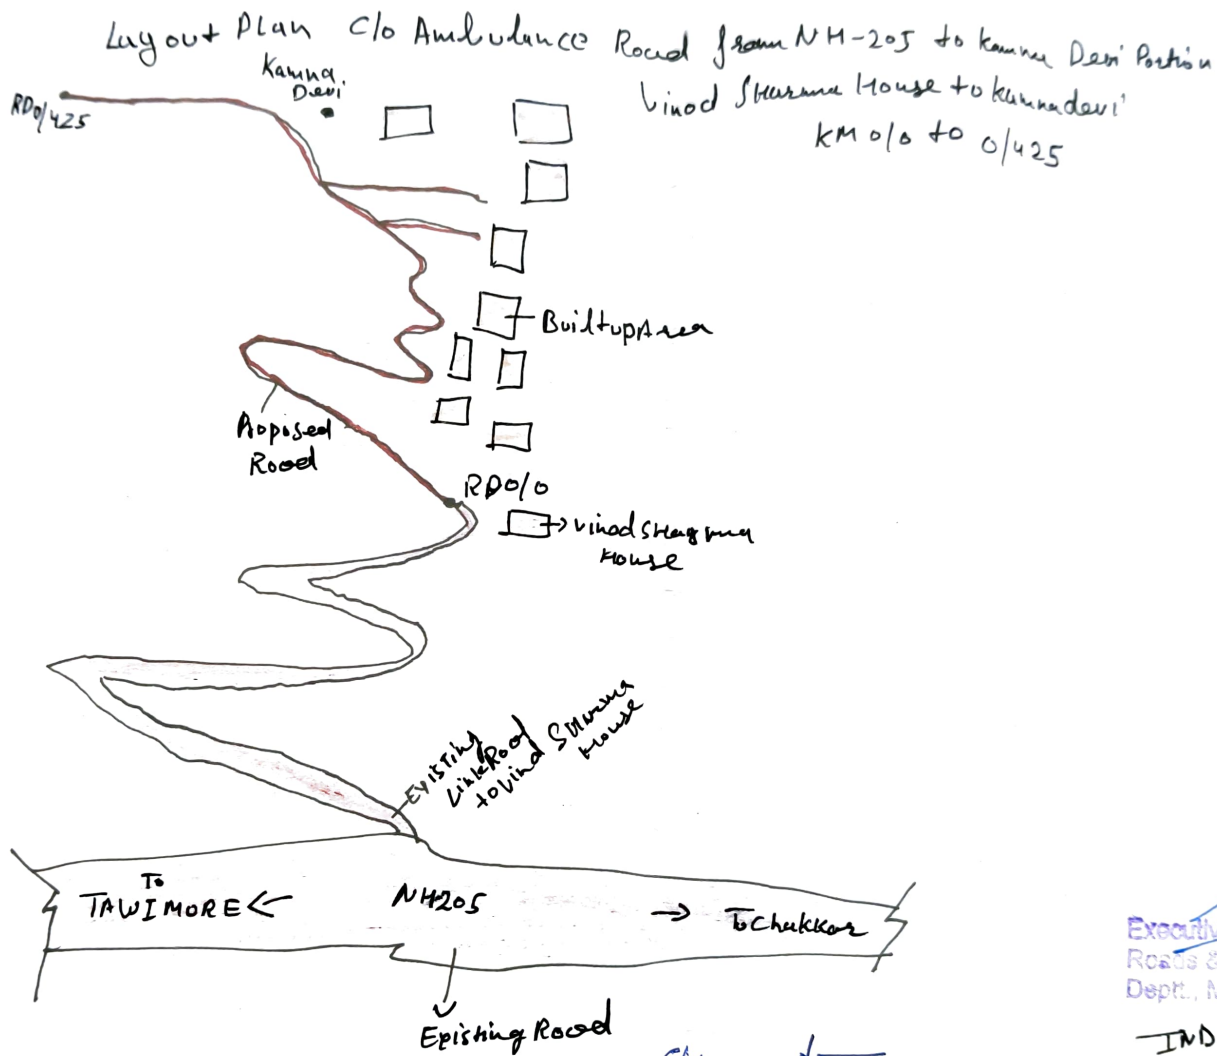 Layout Plan C/o Ambulance Road from NH-205 to Kamna Devi Portion
Vinod Sharma House to Kamnadevi
KM 0/0 to 0/425
Kamna
Devi
RD0/425
BuiltupArea
Proposed
Road
RD0/0
Vinod Sharma
House
Existing
Link Road
to Vind Sharma
House
To
TAWIMORE
NH205
To Chakkar
Existing Road
Executiv
Roads &
Deptt.,
IND